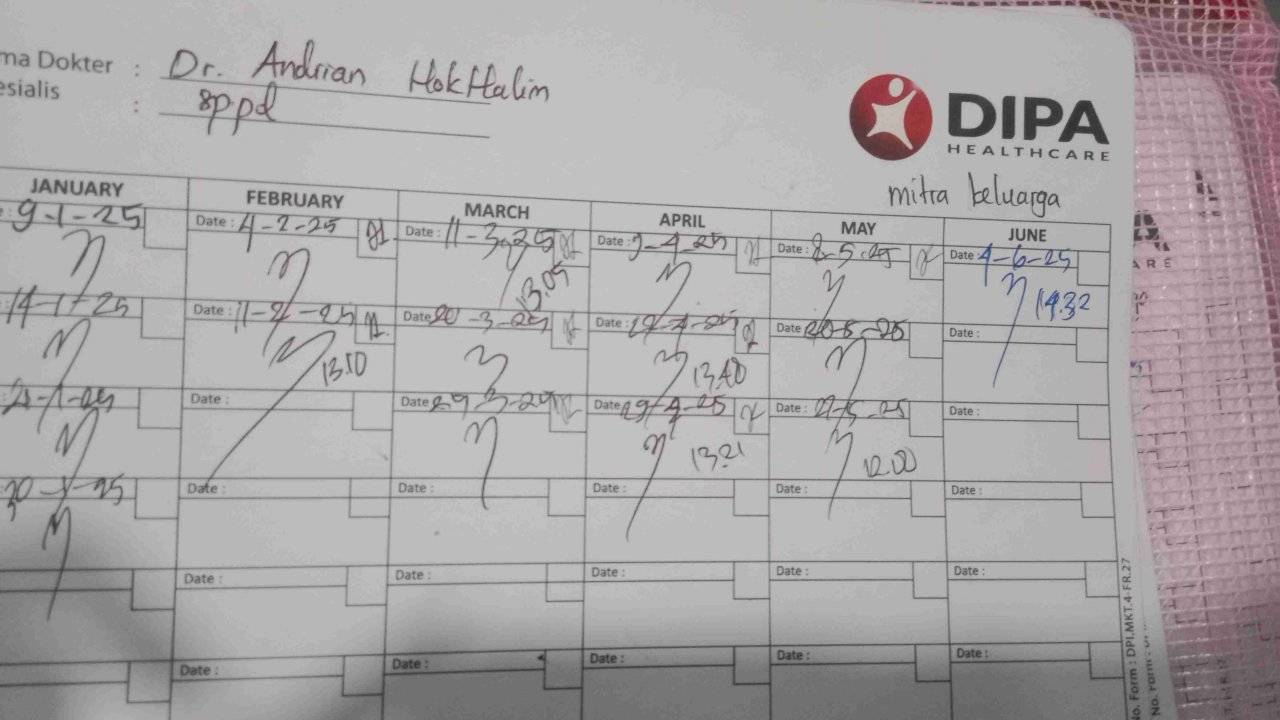 ma Dokter : Dr. Andrian HokHalim
esialis : sp.pd
DIPA
HEALTHCARE
mitra beluarga
JANUARY FEBRUARY MARCH APRIL MAY JUNE
: 9-1-25 Date : 4-2-25 Date : 11-3-25 Date : 9-4-25 Date : 8-5-25 Date : 4-6-25
13.05 14.32
: 14-1-25 Date : 11-2-25 Date 20-3-25 Date : Date 20-5-25 Date :
13.50 13.40
Date : Date 29-3-25 Date 29-4-25 Date : 27-5-25 Date :
13.21 12.00
: 30-1-25 Date : Date : Date : Date : Date :
Date : Date : Date : Date : Date :
Date : Date : Date : Date : Date :
No. Form : DPI.MKT.4-FR.27
No. Form : DP